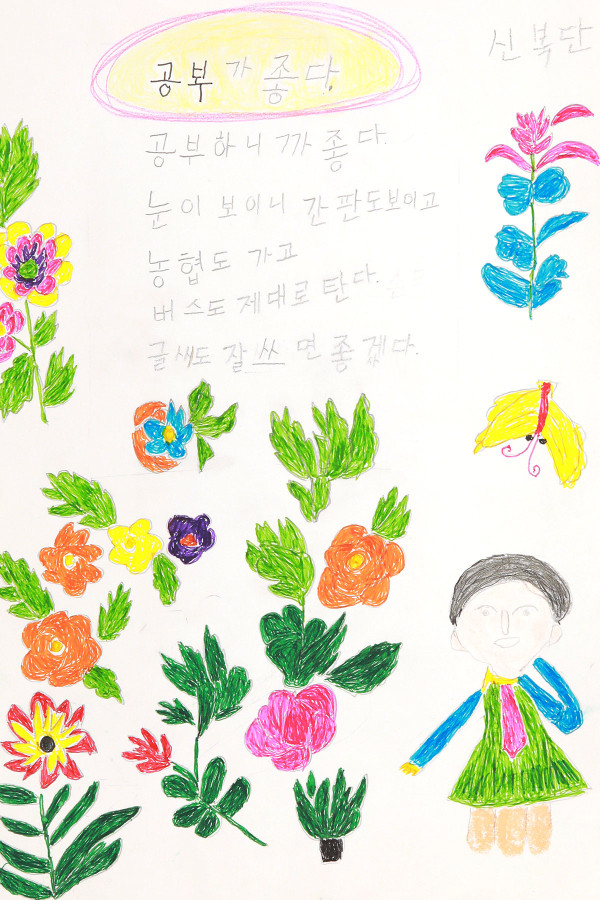 신복단
공부가 좋다.
공부하니까 좋다.
눈이 보이니 간판도보이고
농협도 가고
버스도 제대로 탄다.
글새도 잘 쓰면 좋겠다.